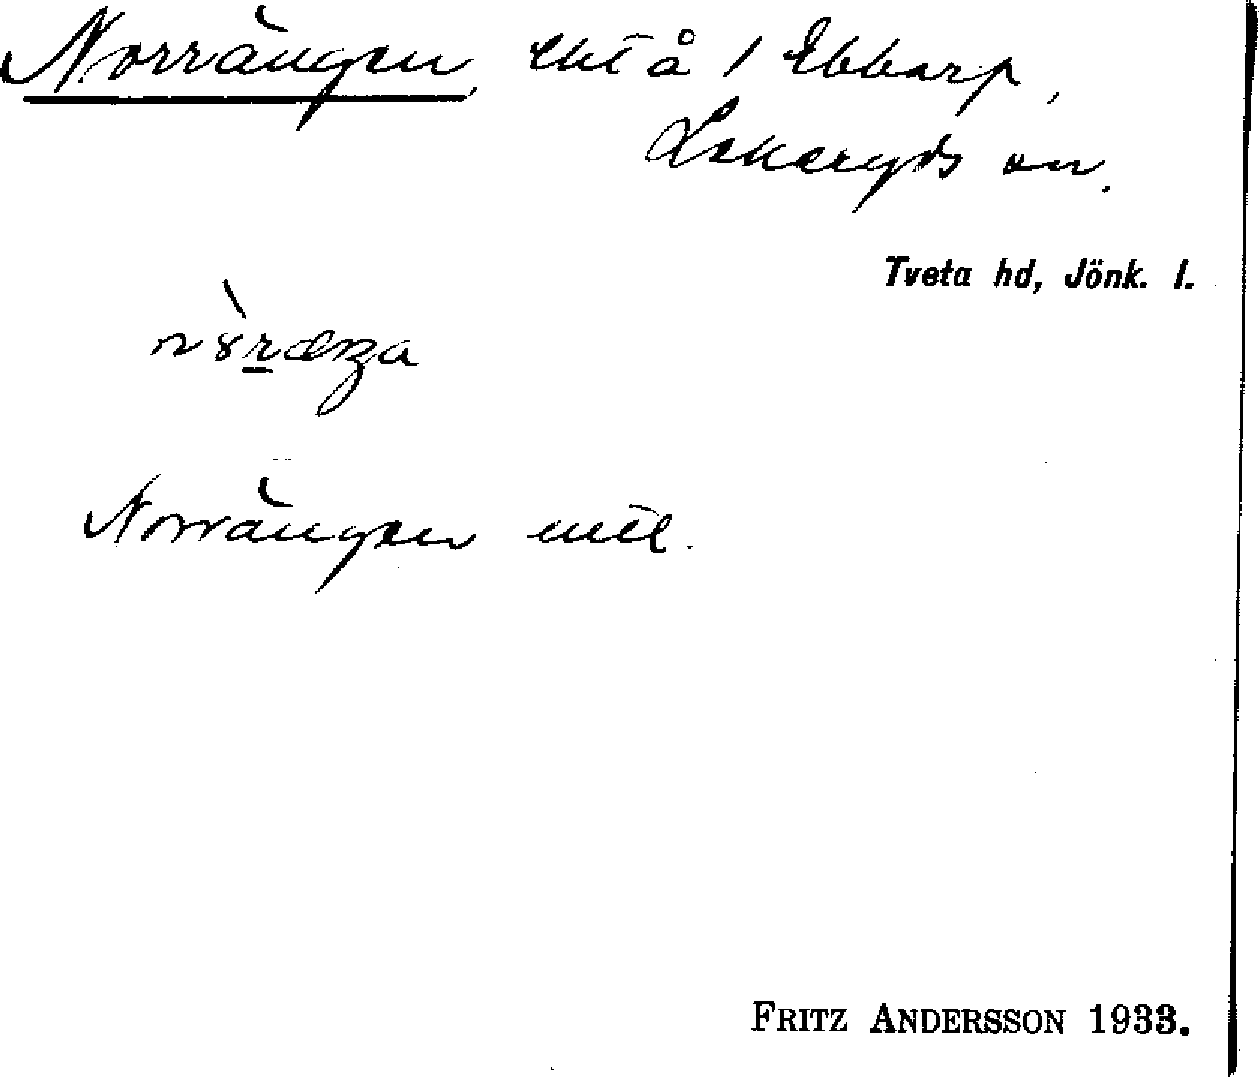 Norrängen, lht å 1 Ebbarp,
Lekeryds sn.
Tveta hd, Jönk. l.
Norrängen
FRITZ ANDERSSON 1933.